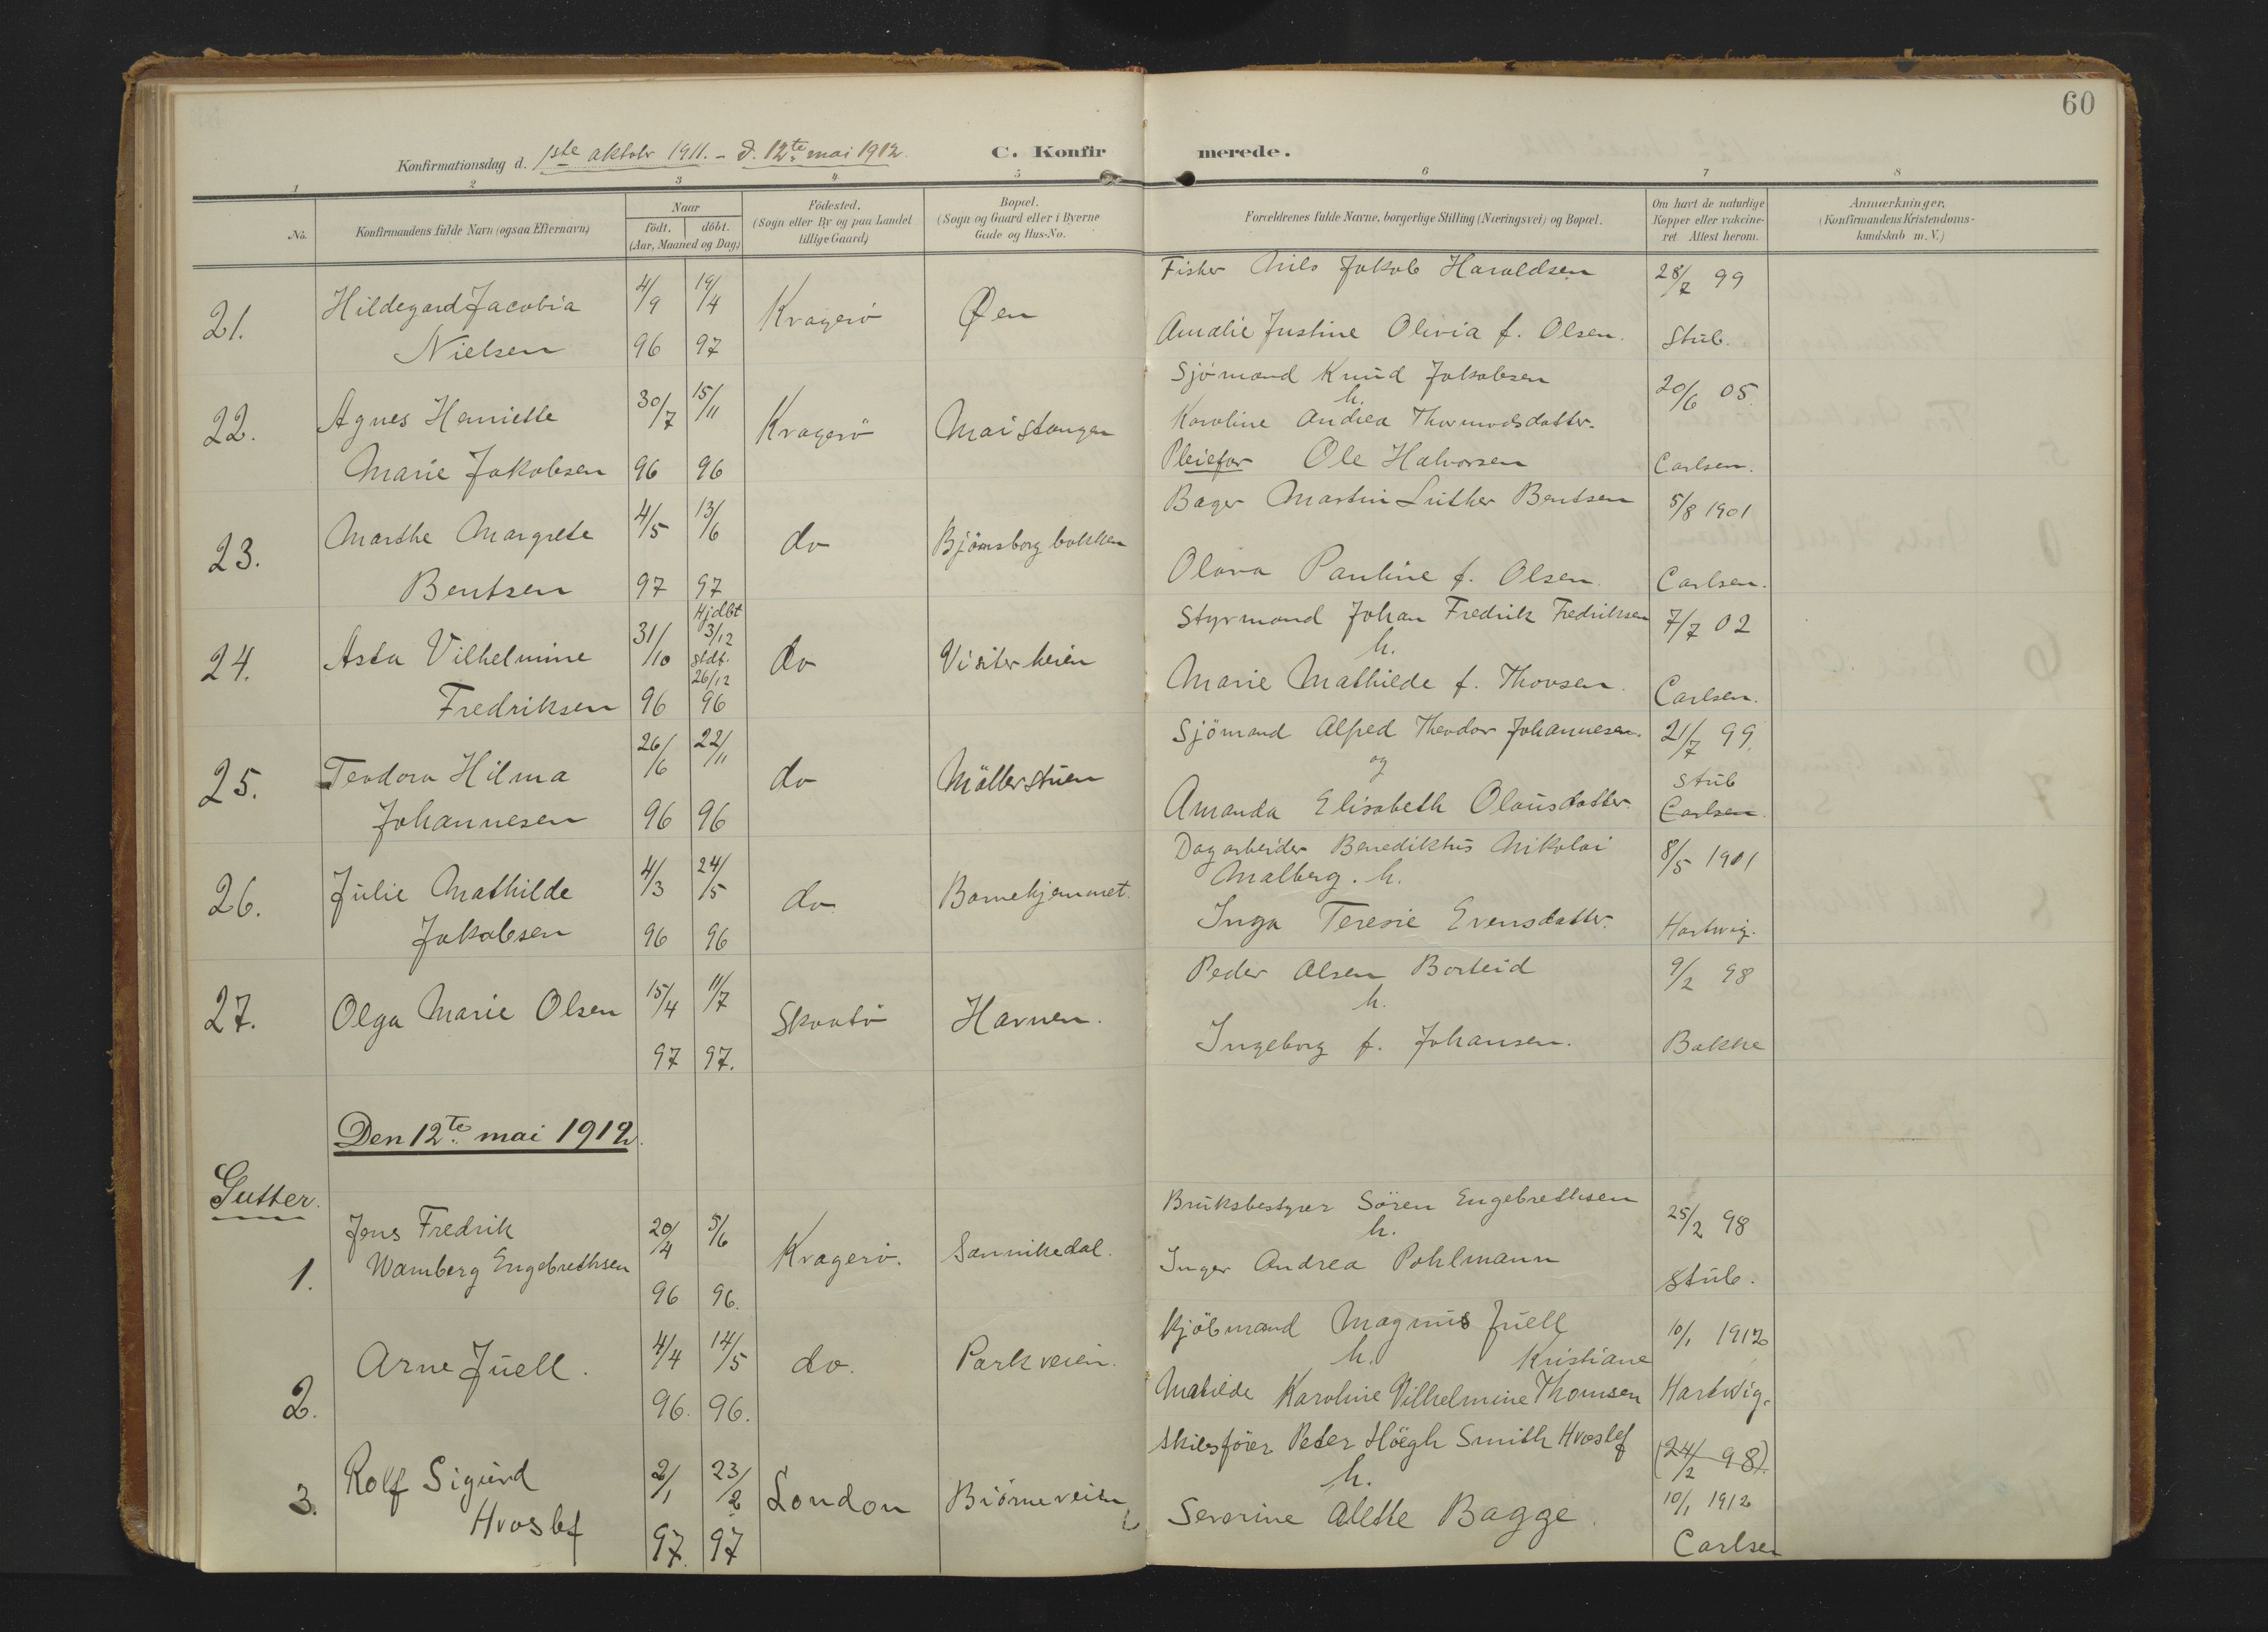 60
Konfirmationsdag d. 1ste oktobr 1911. - d. 12te mai 1912.
C. Konfirmerede.
1 2 3 4 5 6 7 8
No.
Konfirmandens fulde Navn (ogsaa Efternavn)
Naar
födt. döbt.
(Aar, Maaned og Dag)
Födested.
(Sogn eller By og paa Landet
tillige Gaard)
Bopæl.
(Sogn og Gaard eller i Byerne
Gade og Hus-No.
Forældrenes fulde Navne, borgerlige Stilling (Næringsvei) og Bopæl.
Om havt de naturlige
Kopper eller vakcine-
ret. Attest herom.
Anmærkninger,
(Konfirmandens Kristendoms-
kundskab m. V.)
21.
Hildegard Jacobia
Nielsen
4/9 96
19/4 97
Kragerö
Øen
Fisker Nils Jakob Haraldsen
Amalie Justine Olivia f. Olsen.
28/7 99
Stub.
22.
Agnes Henriette
Marie Jakobsen
30/7 96
15/11 96
Kragerö
Maistangen
Sjömand Knud Jakobsen
h.
Karoline Andrea Thormodsdatter.
Pleiefar Ole Halvorsen
20/6 05.
Carlsen.
23.
Marthe Margrete
Bentsen
4/5 97
13/6 97
do
Björnsborgbakken
Bager Martin Luther Bentsen
Olava Pauline f. Olsen.
5/8 1901
Carlsen.
24.
Asta Vilhelmine
Fredriksen
31/10 96
Hjdbt
3/12
stdf.
26/12
96
do
Visiterheien
Styrmand Johan Fredrik Fredriksen
h.
Marie Mathilde f. Thovsen.
7/7 02
Carlsen.
25.
Teodora Hilma
Johannesen
26/6 96
22/11 96
do
Möllerstuen
Sjömand Alfred Theodor Johannesen.
og
Amanda Elisabeth Olausdatter.
21/7 99.
Stub
Carlsen.
26.
Julie Mathilde
Jakobsen
4/3 96
24/5 96
do
Barnehjemmet.
Dagarbeider Benediktus Nikolai
Malberg. h.
Inga Teresie Evensdatter.
8/5 1901
Hartwig.
27.
Olga Marie Olsen
15/4 97
11/7 97.
Skaatö
Havnen.
Peder Olsen Borteid
h.
Ingeborg f. Johansen.
9/2 98
Bakke
Den 12te mai 1912.
Gutter.
1.
Jens Fredrik
Wamberg Engebrethsen
20/4 96
5/6 96.
Kragerö.
Sannikedal.
Bruksbestyrer Sören Engebrethsen
h.
Inger Andrea Pohlmann
25/2 98
Stub.
2.
Arne Juell.
4/4 96.
14/5 96.
do.
Parkveien.
Kjöbmand Magnus Juell
h. Kristiane
Matilde Karoline Vilhelmine Thomsen
10/1 1912
Hartwig.
3.
Rolf Sigurd
Hvoslef
2/1 97.
23/2 97
London
Biörneveien
Skibsförer Peter Höegh Smith Hvoslef
h.
Severine Alette Bagge.
(24/2 98).
10/1 1912
Carlsen